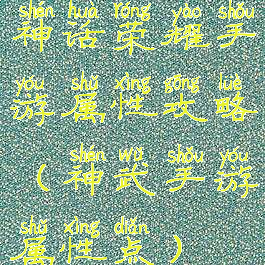 shén huà róng yào shǒu
神话荣耀手
yóu shǔ xìng gōng lüè
游属性攻略
shén wǔ shǒu yóu
（神武手游
shǔ xìng diǎn
属性点）